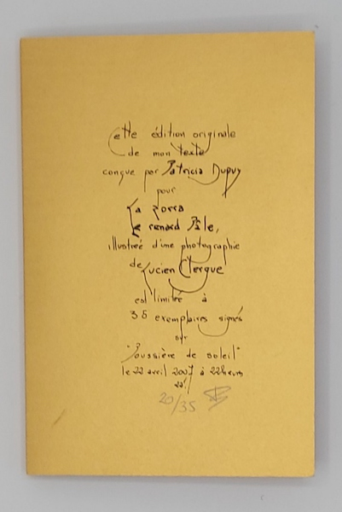 Cette édition originale
de mon texte
conçue par Patricia Dupuy
pour
La Zorra
Le renard Pâle,
illustrée d'une photographie
de Lucien Clergue
est limitée à
35 exemplaires signés
sur
"Poussière de soleil"
le 22 avril 2007 à 22heures
22'
20/35